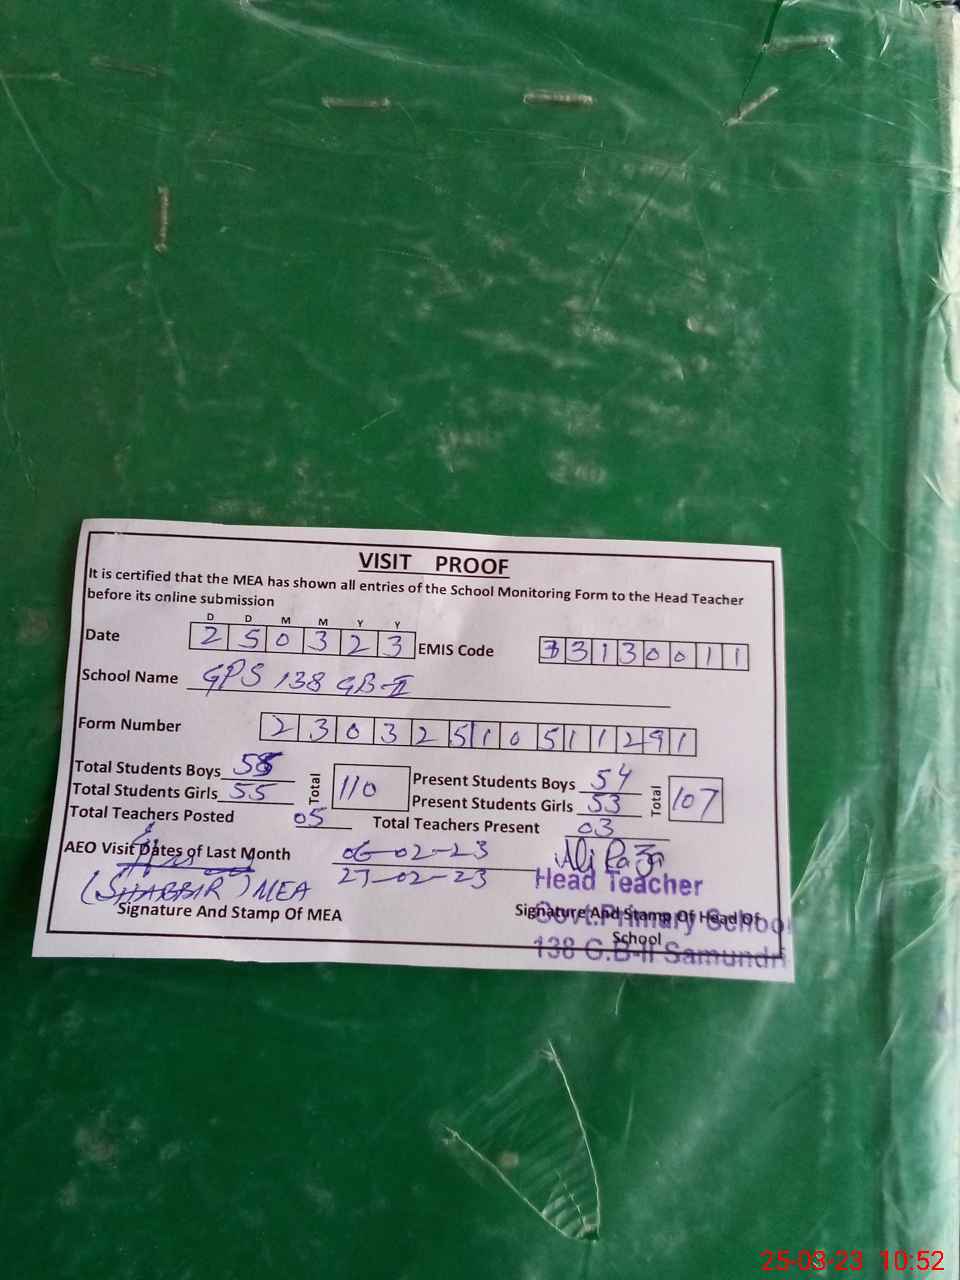 VISIT PROOF
It is certified that the MEA has shown all entries of the School Monitoring Form to the Head Teacher
before its online submission
D D M M Y Y
Date 2 5 0 3 2 3 EMIS Code 3 3 1 3 0 0 1 1
School Name GPS 138 GB-II
Form Number 2 3 0 3 2 5 1 0 5 1 1 2 9 1
Total Students Boys 55 Total 110 Present Students Boys 54 Total 107
Total Students Girls 55 Present Students Girls 53
Total Teachers Posted 05 Total Teachers Present 03
AEO Visit Dates of Last Month 06-02-23 Ali Raza
27-02-23 Head Teacher
(SHABBIR) MEA
Signature And Stamp Of MEA Signature And Stamp Of Head Of
School
Govt. Primary School
138 G.B-II Samundri
25-03-23 10:52